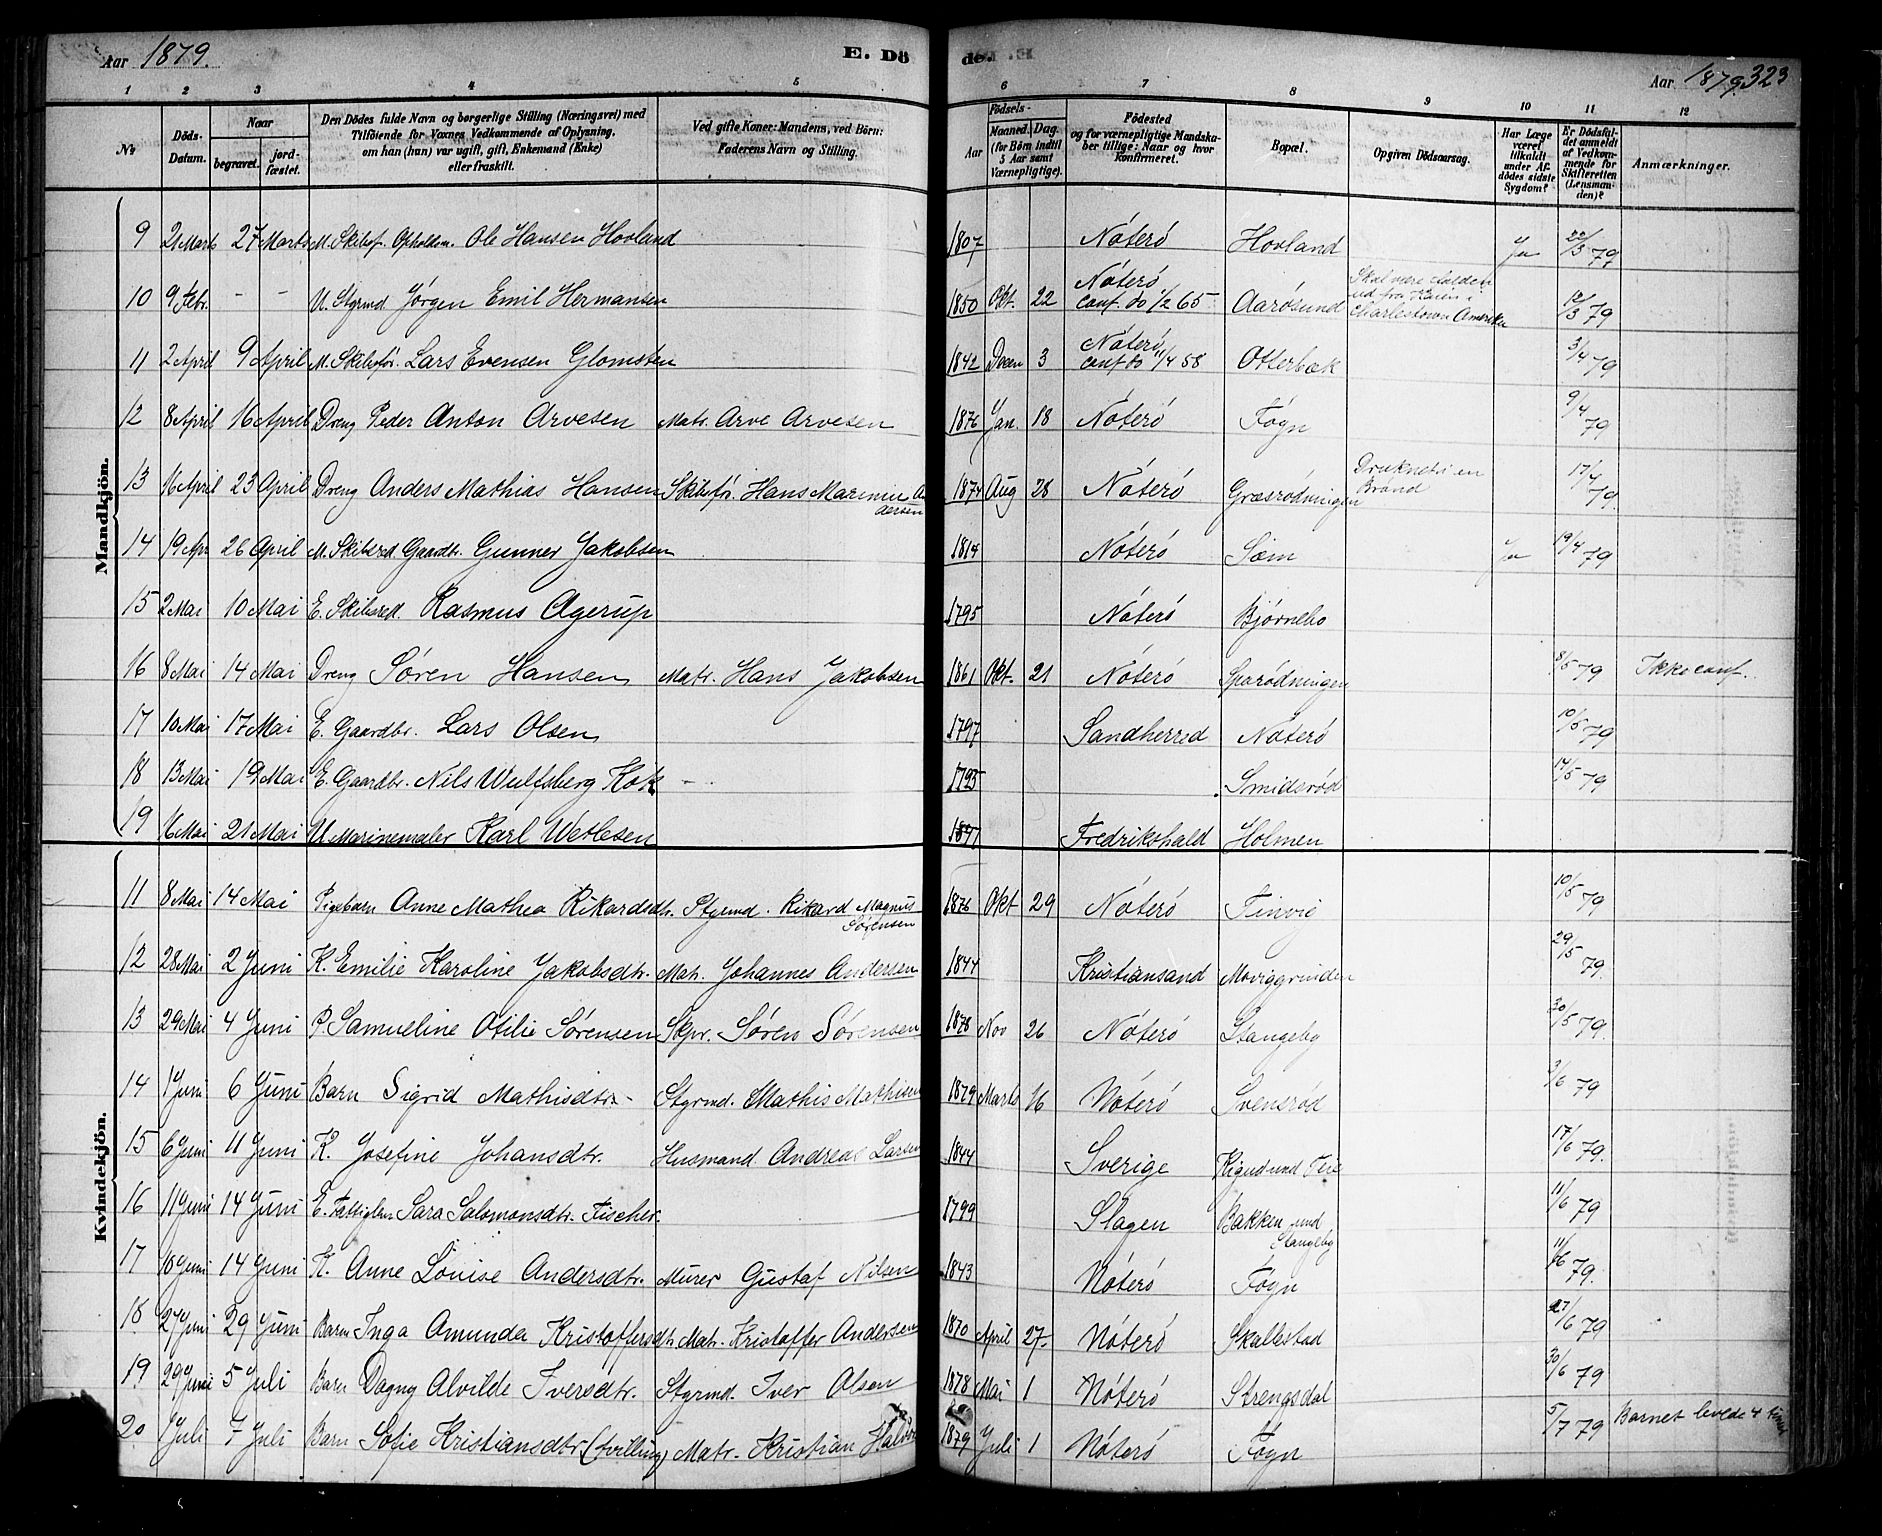 Aar 1879. E. Dö
de. Aar 1879. 323
1 2 3 4 5 6 7 8 9 10 11 12
No
Döds-Datum.
Naar
begravet. jord-fæstet.
Den Dödes fulde Navn og borgerlige Stilling (Næringsvei) med
Tilföiende for Voxnes Vedkommende af Oplysning,
om han (hun) var ugift, gift, Enkemand (Enke)
eller fraskilt.
Ved gifte Koner: Mandens, ved Börn:
Faderens Navn og Stilling.
Födsels-
Aar Maaned. Dag.
(for Börn indtil
5 Aar samt
Værnepligtige).
Födested
og for værnepligtige Mandska-
ber tillige: Naar og hvor
konfirmeret.
Bopæl.
Opgiven Dödsaarsag.
Har Læge
været
tilkaldt
under Af-
dödes sidste
Sygdom?
Er Dödsfal-
det anmeldt
af Vedkom-
mende for
Skifteretten
(Lensman-
den)?
Anmærkninger.
Mandkjön.
9 21 Marts 27 Marts M. Skibsf. Opholdsm. Ole Hansen Hovland 1807 Nöterö Hovland Ja 22/3 79
10 9 Febr. - - U. Styrmd. Jörgen Emil Hermansen 1850 Okt. 22 Nöterö conf. do 1/2 65 Aarösund Skal være falden ud fra Kaien i Charlestown Amerika 12/3 79
11 2 April 9 April M. Skibsför. Lars Evensen Glomsten 1842 Decem 3 Nöterö conf do 11/4 58 Otterbæk 3/4 79
12 8 April 16 April Dreng Peder Anton Arvesen Matr. Arve Arvesen 1876 Jan. 18 Nöterö Fögn 9/4 79
13 16 April 23 April Dreng Anders Mathias Hansen Skibsför. Hans Marinius Andersen 1874 Aug 28 Nöterö Græsrödningen Druknet i en Brönd 17/4 79.
14 19 Apr 26 April M. Skibsred. Gaardbr. Gunner Jakobsen 1814 Nöterö Sæm Ja 19/4 79
15 2 Mai 10 Mai E. Skibsred. Rasmus Agerup 1795 Nöterö Björnebo
16 8 Mai 14 Mai Dreng Sören Hansen Matr. Hans Jakobsen 1861 Okt. 21 Nöterö Sparödningen 8/5 79 Ikke conf.
17 10 Mai 17 Mai E. Gaardbr. Lars Olsen 1797 Sandherred Nöterö 10/5 79
18 13 Mai 19 Mai E. Gaardbr. Nils Wulfsberg Kok - 1795 Smidsröd 14/5 79
19 16 Mai 21 Mai U. Marinemaler Karl Wetlesen Fredrikshald Holmen
Kvindekjön.
11 8 Mai 14 Mai Pigebarn Anne Mathea Rikardsdtr. Styrmd. Rikard Magnus Sörensen 1876 Okt 29 Nöterö Tinvig 10/5 79
12 28 Mai 2 Juni K. Emilie Karoline Jakobsdtr. Matr. Johannes Andersen 1844 Kristiansand Moviggrinden 29/5 79.
13 29 Mai 4 Juni P. Samueline Otilie Sörensen Skpr. Sören Sörensen 1878 Nov 26 Nöterö Stangeby 30/5 79.
14 1 Juni 6 Juni Barn Sigrid Mathisdtr. - Styrmd. Mathis Mathisen 1879 Marts 16 Nöterö Svensröd 3/6 79
15 6 Juni 11 Juni K. Josefine Johansdtr. Husmand Andreas Larsen 1844 Sverige und Teie 17/6 79.
16 11 Juni 14 Juni E. Fattiglem Sara Salomonsdtr. Fischer. 1799 Slagen Bakken und Stangeby 11/6 79
17 10 Juni 14 Juni K. Anne Louise Andersdtr. Murer Gustaf Nilsen 1843 Nöterö Fögn 11/6 79.
18 27 Juni 29 Juni Barn Inga Amunda Kristoffersdtr. Matr. Kristoffer Andersen 1870 April 27. Nöterö Skallestad 27/6 79
19 29 Juni 5 Juli Barn Dagny Alvilde Iversdtr. Styrmd. Iver Olsen 1878 Mai 1 Nöterö Strengsdal 30/6 79
20 1 Juli 7 Juli Barn Sofie Kristiansdtr (tvilling) Matr. Kristian 1879 Juli 1 Nöterö Fögn 5/7 79 Barnet levede 4 timer